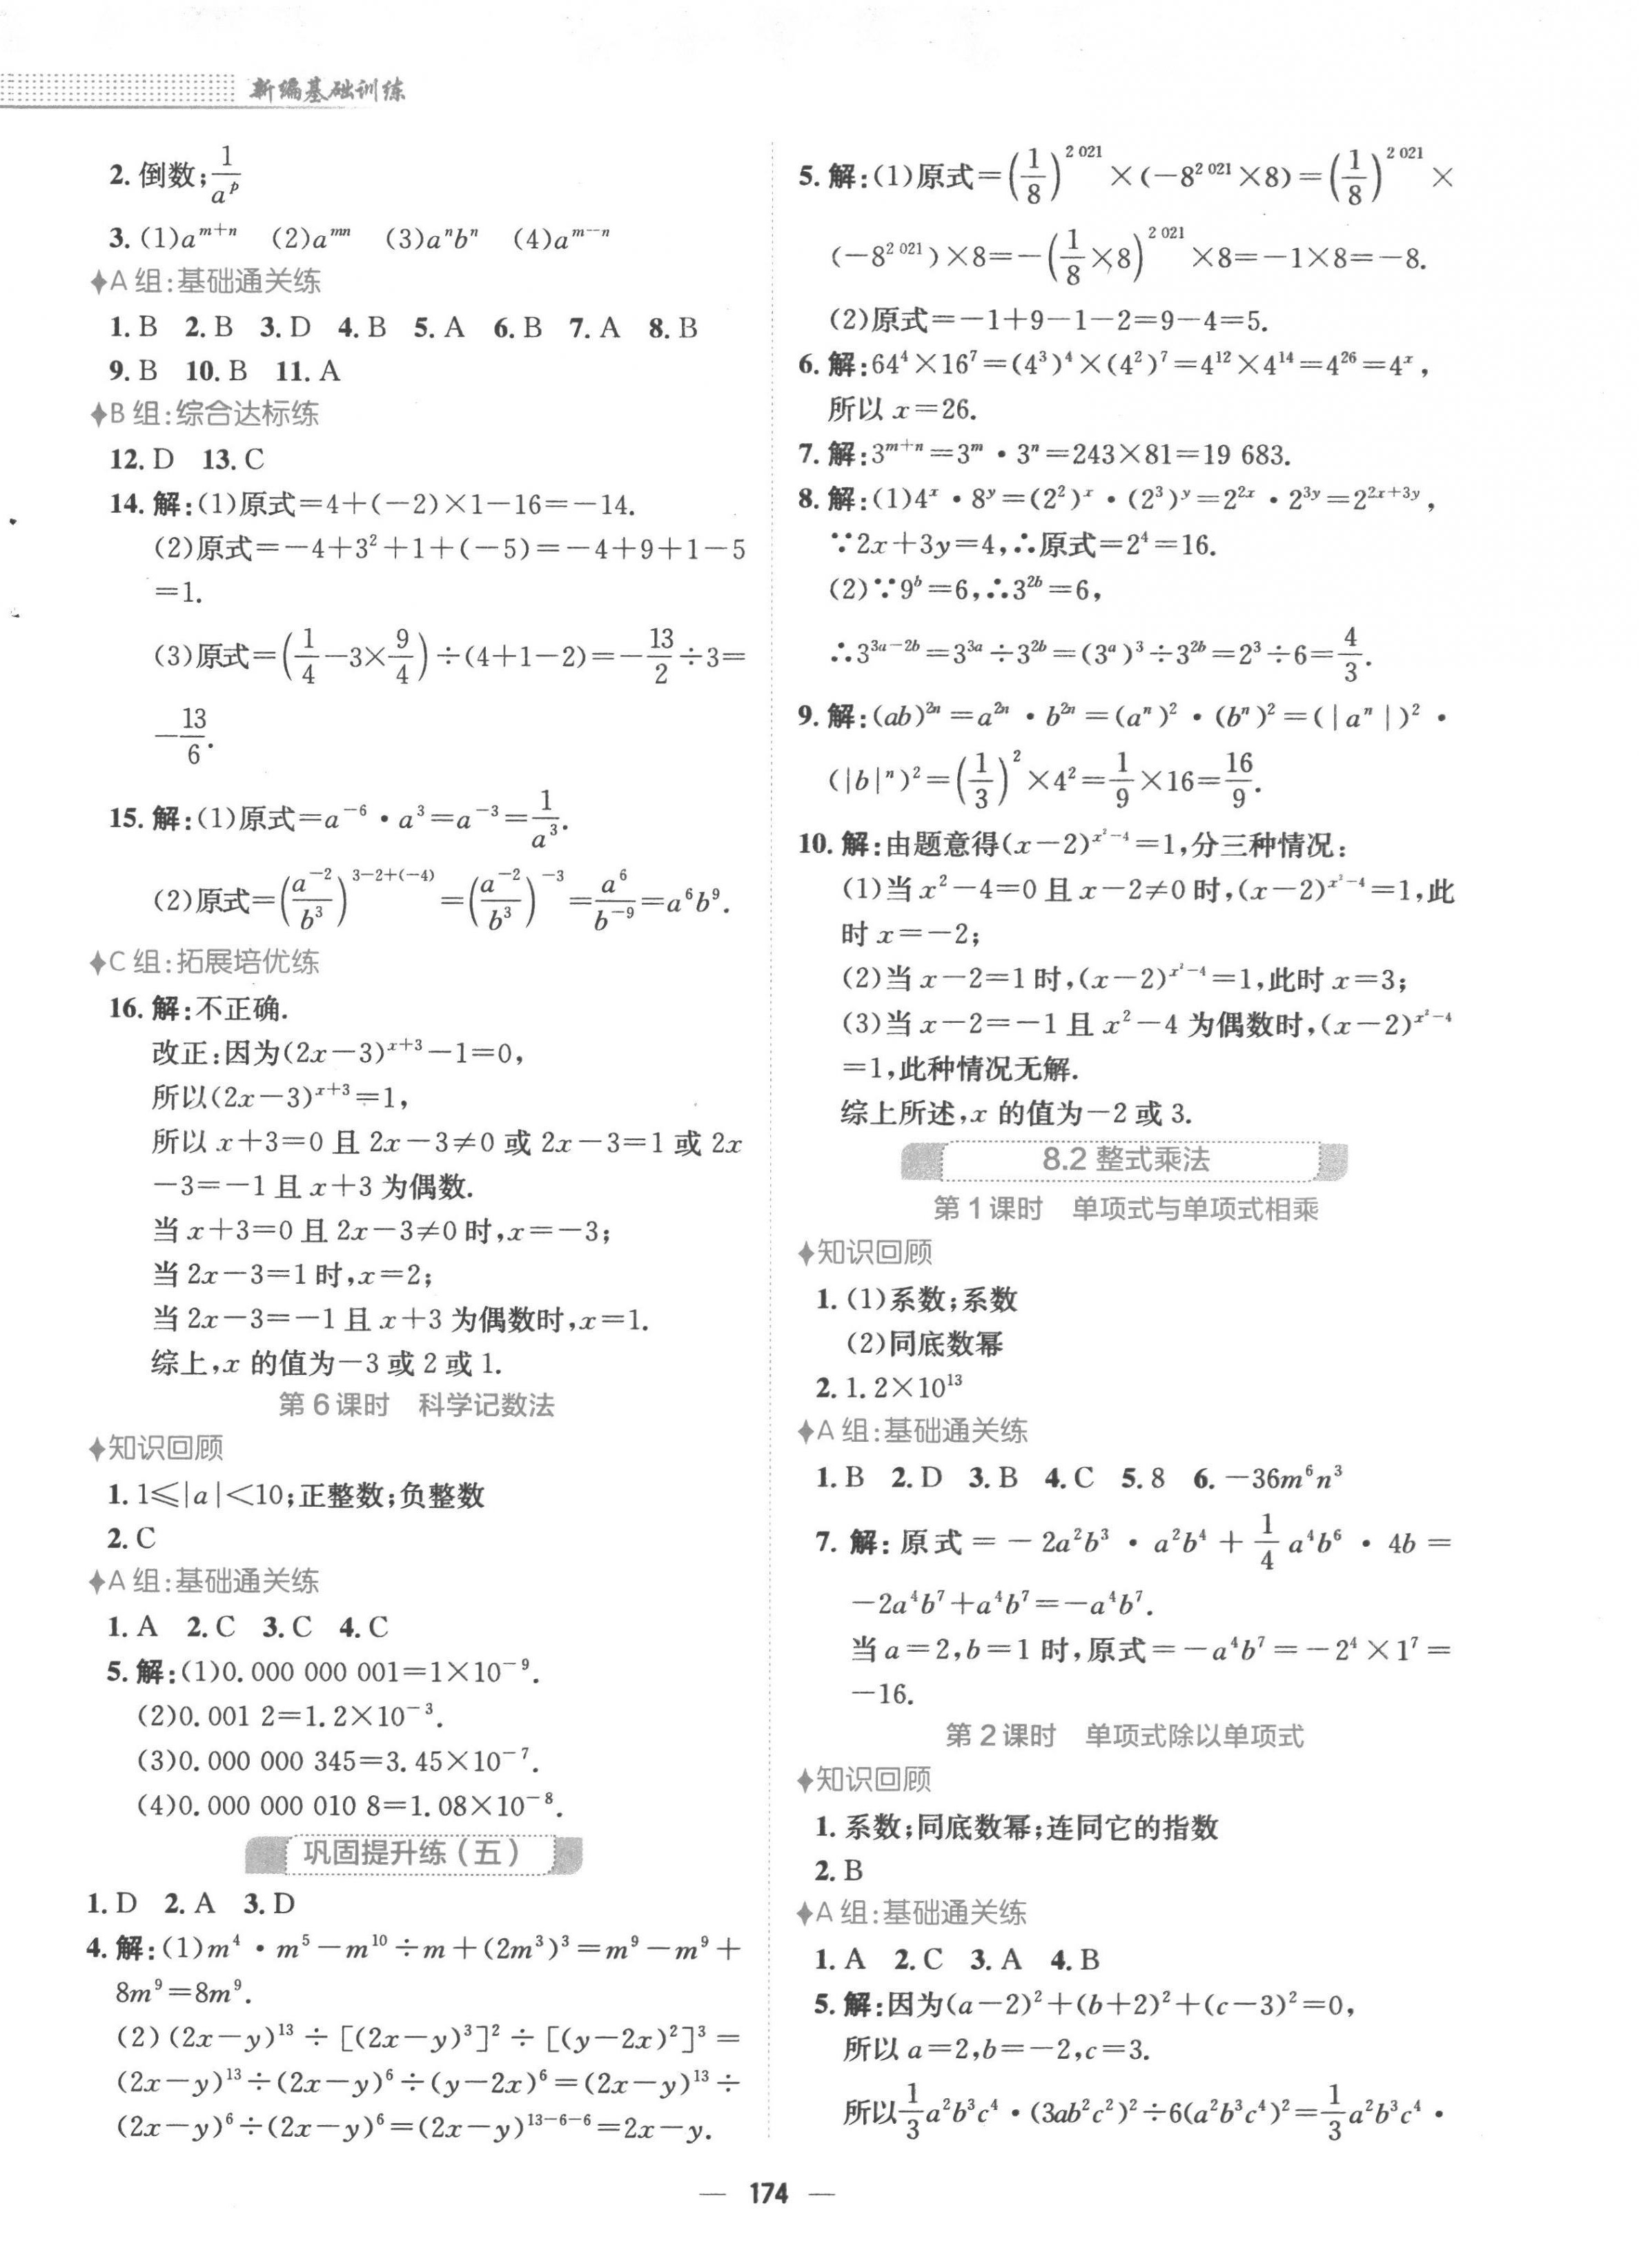 新编基础训练
2. 倒数;1/a^p
3. (1)a^{m+n} (2)a^{mn} (3)a^n b^n (4)a^{m-n}
A 组:基础通关练
1. B 2. B 3. D 4. B 5. A 6. B 7. A 8. B
9. B 10. B 11. A
B 组:综合达标练
12. D 13. C
14. 解:(1)原式=4+(-2)×1-16=-14.
(2)原式=-4+3²+1+(-5)=-4+9+1-5
=1.
(3)原式=(1/4-3×9/4)÷(4+1-2)=-13/2÷3=
-13/6.
15. 解:(1)原式=a^{-6}·a^3=a^{-3}=1/a^3.
(2)原式=(a^{-2}/b^3)^{3-2+(-4)}=(a^{-2}/b^3)^{-3}=a^6/b^{-9}=a^6b^9.
C 组:拓展培优练
16. 解:不正确.
改正:因为(2x-3)^{x+3}-1=0,
所以(2x-3)^{x+3}=1,
所以 x+3=0 且 2x-3≠0 或 2x-3=1 或 2x
-3=-1 且 x+3 为偶数.
当 x+3=0 且 2x-3≠0 时,x=-3;
当 2x-3=1 时,x=2;
当 2x-3=-1 且 x+3 为偶数时,x=1.
综上,x 的值为-3 或 2 或 1.
第 6 课时 科学记数法
知识回顾
1. 1≤|a|<10;正整数;负整数
2. C
A 组:基础通关练
1. A 2. C 3. C 4. C
5. 解:(1)0.000 000 001=1×10^{-9}.
(2)0.001 2=1.2×10^{-3}.
(3)0.000 000 345=3.45×10^{-7}.
(4)0.000 000 010 8=1.08×10^{-8}.
巩固提升练(五)
1. D 2. A 3. D
4. 解:(1)m^4·m^5-m^{10}÷m+(2m^3)^3=m^9-m^9+
8m^9=8m^9.
(2)(2x-y)^{13}÷[(2x-y)^3]^2÷[(y-2x)^2]^3=
(2x-y)^{13}÷(2x-y)^6÷(y-2x)^6=(2x-y)^{13}÷
(2x-y)^6÷(2x-y)^6=(2x-y)^{13-6-6}=2x-y.
5. 解:(1)原式=(1/8)^{2 021}×(-8^{2 021}×8)=(1/8)^{2 021}×
(-8^{2 021})×8=-(1/8×8)^{2 021}×8=-1×8=-8.
(2)原式=-1+9-1-2=9-4=5.
6. 解:64^4×16^7=(4^3)^4×(4^2)^7=4^{12}×4^{14}=4^{26}=4^x,
所以 x=26.
7. 解:3^{m+n}=3^m·3^n=243×81=19 683.
8. 解:(1)4^x·8^y=(2^2)^x·(2^3)^y=2^{2x}·2^{3y}=2^{2x+3y},
∵2x+3y=4,∴原式=2^4=16.
(2)∵9^b=6,∴3^{2b}=6,
∴3^{3a-2b}=3^{3a}÷3^{2b}=(3^a)^3÷3^{2b}=2^3÷6=4/3.
9. 解:(ab)^{2n}=a^{2n}·b^{2n}=(a^n)^2·(b^n)^2=(|a^n|)^2·
(|b|^n)^2=(1/3)^2×4^2=1/9×16=16/9.
10. 解:由题意得(x-2)^{x²-4}=1,分三种情况:
(1)当 x²-4=0 且 x-2≠0 时,(x-2)^{x²-4}=1,此
时 x=-2;
(2)当 x-2=1 时,(x-2)^{x²-4}=1,此时 x=3;
(3)当 x-2=-1 且 x²-4 为偶数时,(x-2)^{x²-4}
=1,此种情况无解.
综上所述,x 的值为-2 或 3.
8.2 整式乘法
第 1 课时 单项式与单项式相乘
知识回顾
1. (1)系数;系数
(2)同底数幂
2. 1.2×10^{13}
A 组:基础通关练
1. B 2. D 3. B 4. C 5. 8 6. -36m^6n^3
7. 解:原式=-2a^2b^3·a^2b^4+1/4 a^4b^6·4b=
-2a^4b^7+a^4b^7=-a^4b^7.
当 a=2,b=1 时,原式=-a^4b^7=-2^4×1^7=
-16.
第 2 课时 单项式除以单项式
知识回顾
1. 系数;同底数幂;连同它的指数
2. B
A 组:基础通关练
1. A 2. C 3. A 4. B
5. 解:因为(a-2)²+(b+2)²+(c-3)²=0,
所以 a=2,b=-2,c=3.
所以1/3 a^2b^3c^4·(3ab^2c^2)^2÷6(a^2b^3c^4)^2=1/3 a^2b^3c^4·
— 174 —